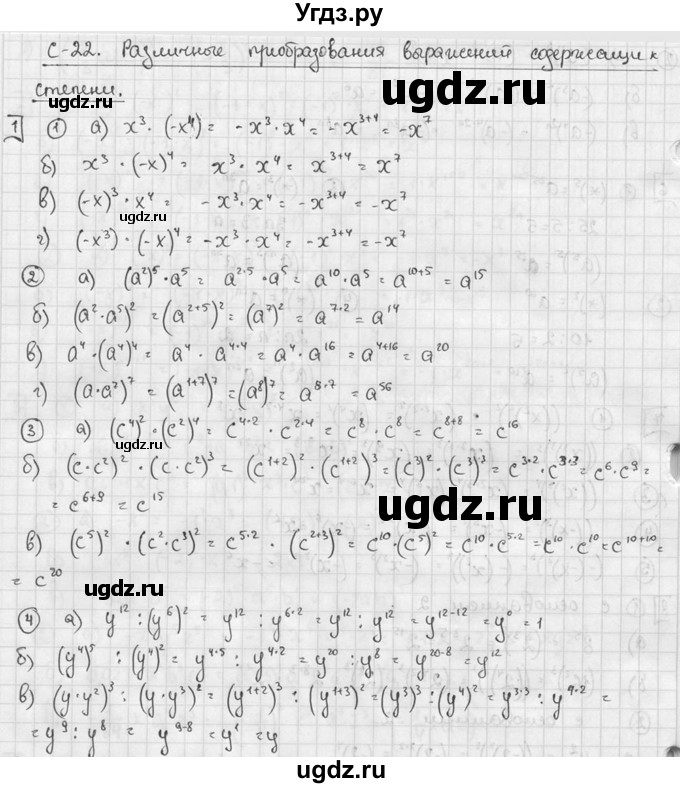 Угдз.ру
С-22. Различные приобразования выражений содержащих
степени.
1 ① а) x³ · (-x⁴) = -x³ · x⁴ = -x³⁺⁴ = -x⁷
б) x³ · (-x)⁴ = x³ · x⁴ = x³⁺⁴ = x⁷
в) (-x)³ · x⁴ = -x³ · x⁴ = -x³⁺⁴ = -x⁷
г) (-x³) · (-x)⁴ = -x³ · x⁴ = -x³⁺⁴ = -x⁷
② а) (a²)⁵ · a⁵ = a²·⁵ · a⁵ = a¹⁰ · a⁵ = a¹⁰⁺⁵ = a¹⁵
б) (a² · a⁵)² = (a²⁺⁵)² = (a⁷)² = a⁷·² = a¹⁴
в) a⁴ · (a⁴)⁴ = a⁴ · a⁴·⁴ = a⁴ · a¹⁶ = a⁴⁺¹⁶ = a²⁰
г) (a · a⁷)⁷ = (a¹⁺⁷)⁷ = (a⁸)⁷ = a⁸·⁷ = a⁵⁶
③ а) (c⁴)² · (c²)⁴ = c⁴·² · c²·⁴ = c⁸ · c⁸ = c⁸⁺⁸ = c¹⁶
б) (c · c²)² · (c · c²)³ = (c¹⁺²)² · (c¹⁺²)³ = (c³)² · (c³)³ = c³·² · c³·³ = c⁶ · c⁹ =
= c⁶⁺⁹ = c¹⁵
в) (c⁵)² · (c² · c³)² = c⁵·² · (c²⁺³)² = c¹⁰ · (c⁵)² = c¹⁰ · c⁵·² = c¹⁰ · c¹⁰ = c¹⁰⁺¹⁰ =
= c²⁰
④ а) y¹² : (y⁶)² = y¹² : y⁶·² = y¹² : y¹² = y¹²⁻¹² = y⁰ = 1
б) (y⁴)⁵ : (y⁴)² = y⁴·⁵ : y⁴·² = y²⁰ : y⁸ = y²⁰⁻⁸ = y¹²
в) (y · y²)³ : (y · y³)² = (y¹⁺²)³ : (y¹⁺³)² = (y³)³ : (y⁴)² = y³·³ : y⁴·² =
= y⁹ : y⁸ = y⁹⁻⁸ = y¹ = y
ugdz.ru
ugdz.ru
ugdz.ru
ugdz.ru
ugdz.ru
ugdz.ru
ugdz.ru
ugdz.ru
ugdz.ru
ugdz.ru